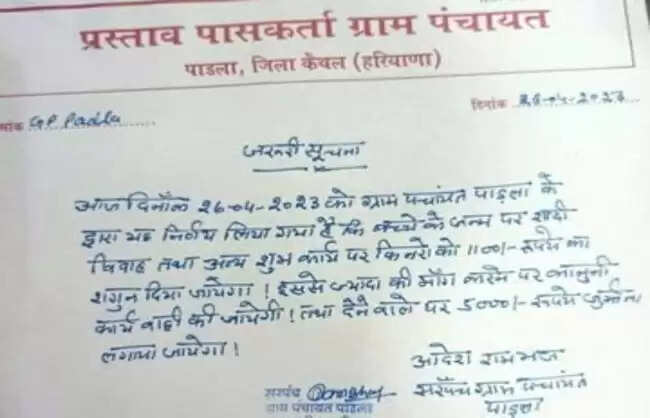 प्रस्ताव पासकर्ता ग्राम पंचायत
पाडला, जिला कैथल (हरियाणा)
मांक GP Padla दिनांक 26-04-2023
जरूरी सूचना
आज दिनाँक 26-04-2023 को ग्राम पंचायत पाडला के
द्वारा यह निर्णय लिया गया है कि बच्चे के जन्म पर शादी
विवाह तथा अन्य शुभ कार्य पर किन्नरो को 1100/- रूपये का
शगुन दिया जायेगा! इससे ज्यादा की माँग करने पर कानुनी
कार्य वाही की जायेगी! तथा देने वाले पर 5000/- रूपये जुर्माना
लगाया जायेगा!
आदेश रामभज
सरपंच ग्राम पंचायत
पाडला
सरपंच
ग्राम पंचायत पाडला